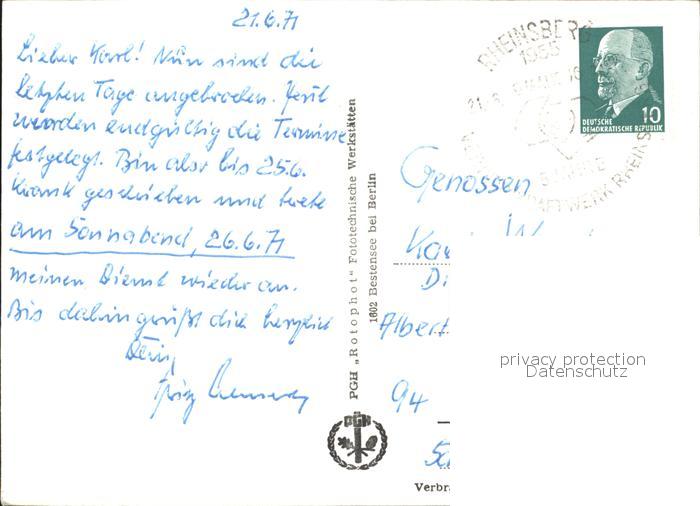 21.6.71
Lieber Karl! Nun sind die
letzten Tage angebrochen. Jetzt
wurden endgültig die Termine
festgelegt. Bin also bis 25.6.
krank geschrieben und trete
am Sonnabend, 26.6.71
meinen Dienst wieder an.
Bis dahin grüßt dich herzlich
Dein
Fritz
PGH „Rotophot“ Fototechnische Werkstätten
1602 Bestensee bei Berlin
PGH
RHEINSBERG
1955
5 JAHRE
10
DEUTSCHE
DEMOKRATISCHE REPUBLIK
Genossen
Ka
Di
Albert
94
Verbr
privacy protection
Datenschutz